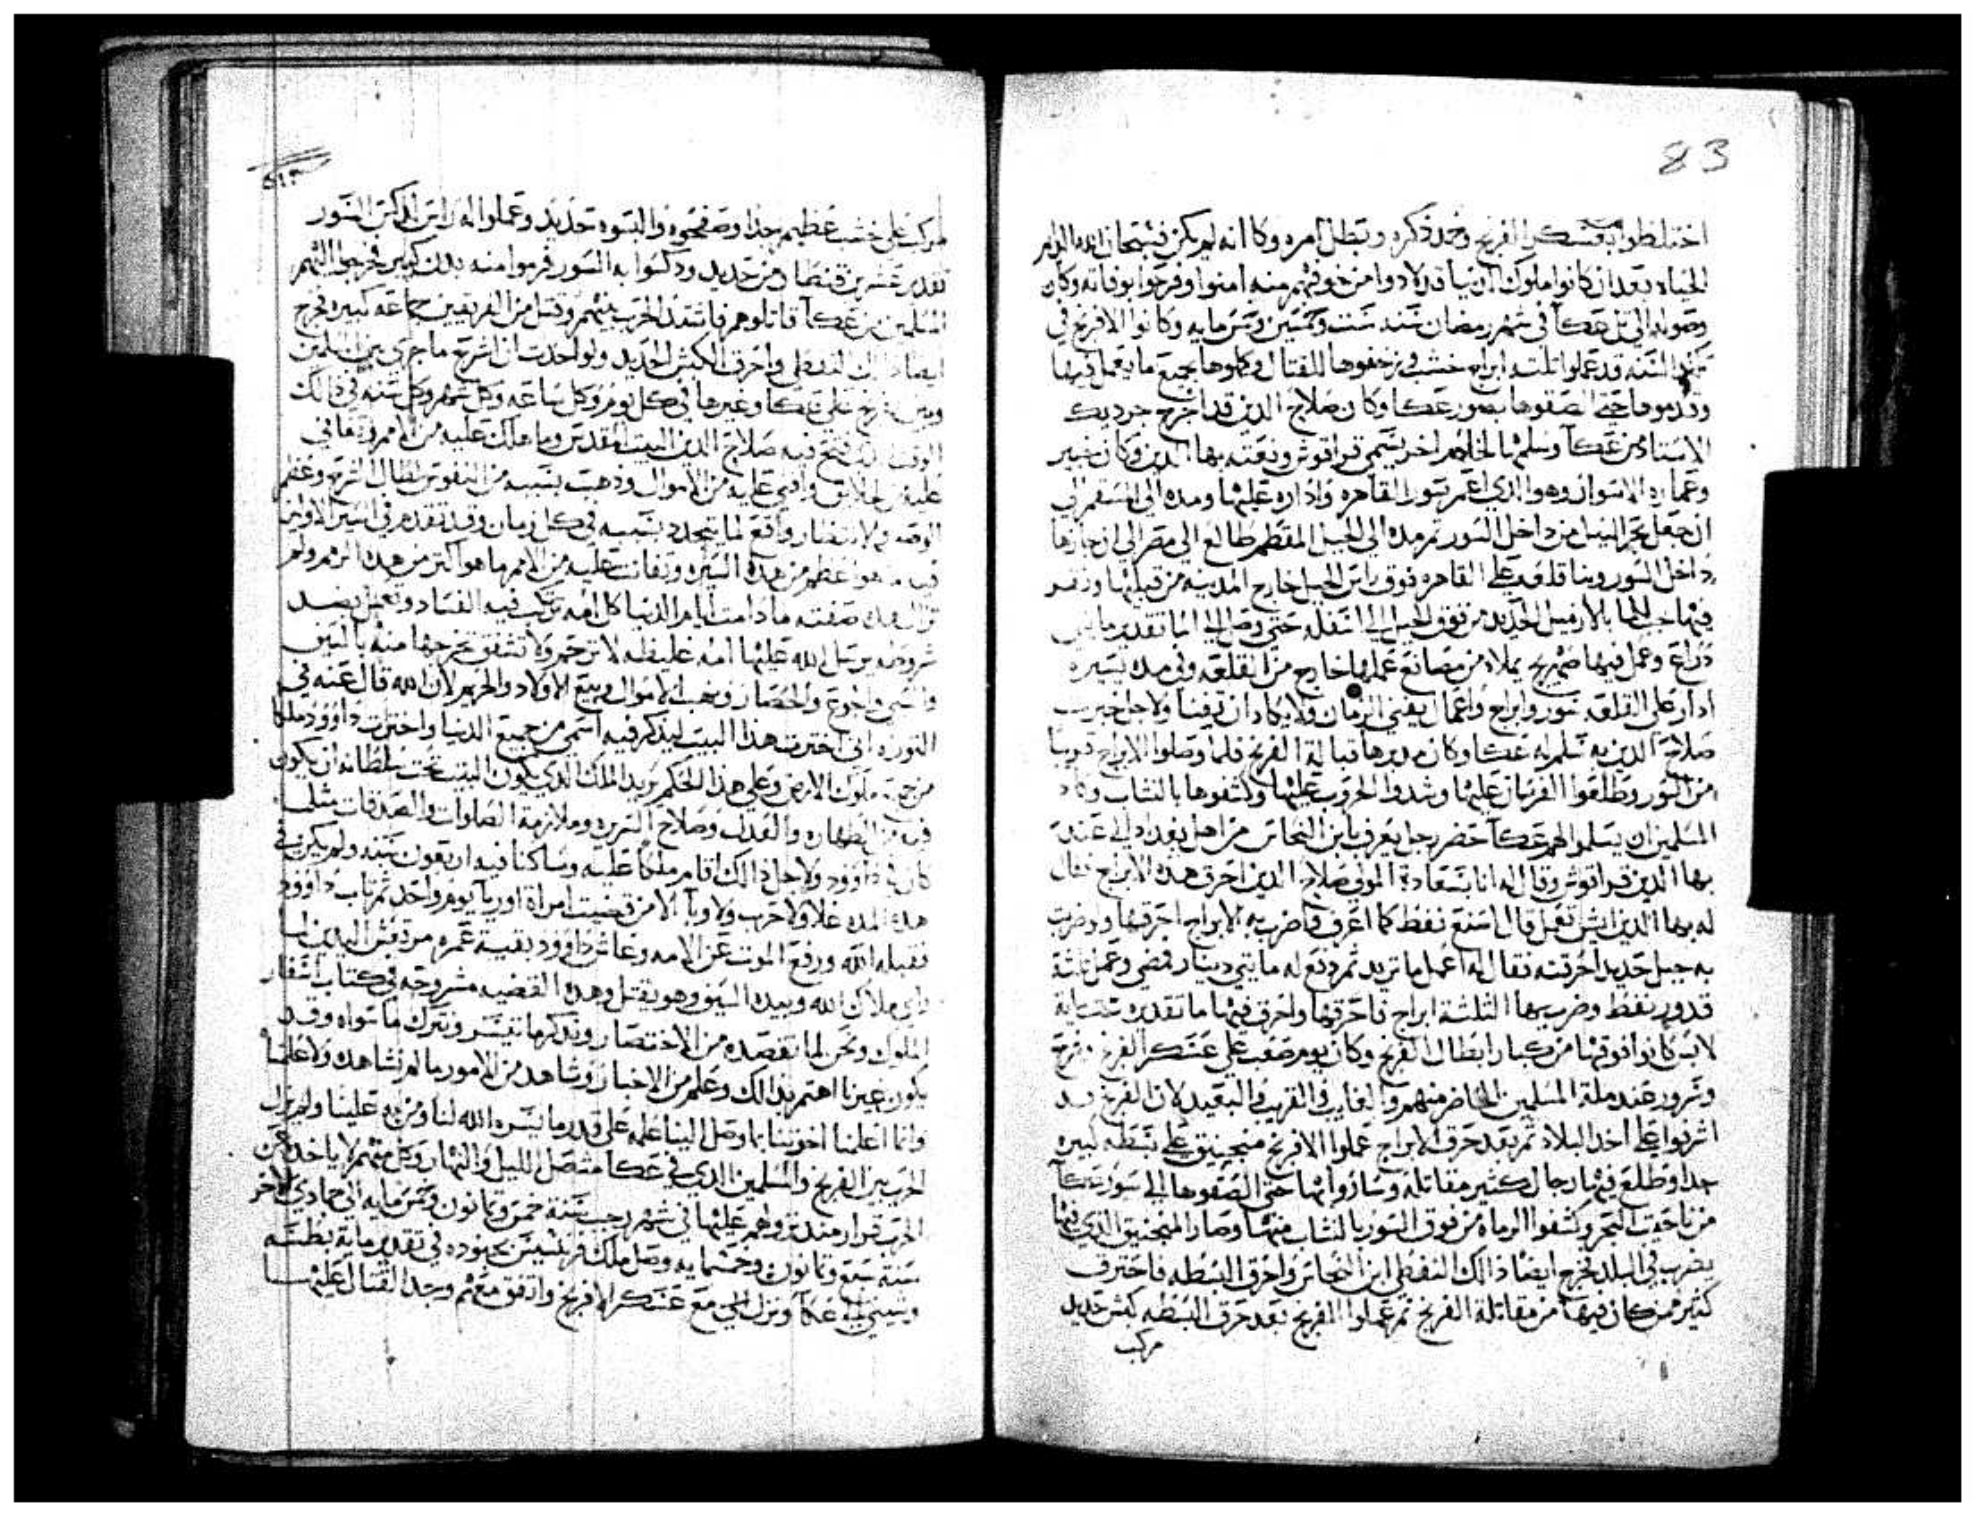 83
اختلطوا بعسكر الفرنج وخمد ذكره وبطل امره وكا انه لم يكن فسبحان الله الدايم
الحياه بعد ان كانوا ملوك الدنيا قد لادوا من خوفهم منه امنوا وفرحوا بوفاته وكان
وصوله الى عكا في شهر رمضان سنه ست وثمنين وخمس مايه وكانوا الافرنج في
هذه السنه قد عملوا ثلثه ابراج خشب وزحفوها للقتال وكملوها بجميع ما يعمل فيها
وقدموها حتى الصقوها بصور عكا وكان صلاح الدين قد اخرج جرديك
الاستاد من عكا وسلمها لخادم اخر يسمى قراقوش ونعته بها الدين وكان خبير
وعماره الاسوار وهو الذي اعمر سور القاهره واداره عليها ومده الى المقسم الى
ان جعل بحر النيل من داخل السور ثم مده الى الجبل المقطم طالع الى مصر الى ان جازها
داخل السور وبنا قلعه على القاهره فوق راس الجبل خارج المدينه من قبليها ونقر
فيها جب للما بالازميل الحديد من فوق الجبل الى اسفله حتى وصل الى الما تقديره مايتين
دراع وعمل فيها صهريج يملاه من مصانع عملها خارج من القلعه وفي مده يسيره
ادار على القلعه سور وابراج واعمال يفنى الزمان ولا يكاد ان تفنا ولاجل خبرته
صلاح الدين به سلم له عكا وكان مدبرها قبالة الفرنج فلما وصلوا الابراج قريبا
من السور وطلعوا الفرسان عليها وشدوا الحروب عليها وكشفوها بالنشاب وكاد
المسلمين ان يسلموا لهم عكا حضر رجل يعرف بابن النحاس من اهل بغداد الى عند
بها الدين قراقوش وقال له انا بسعادة المولى صلاح الدين احرق هذه الابراج فقال
له بها الدين ايش تعمل قال اصنع نفط كما اعرف واضرب به الابراج احرقها ولو ضربت
به جبل حديد احرقته فقال له اعمل ما تريد ثم دفع له مايتي دينار فمضى وعمل ثلثة
قدور نفط وضرب بها الثلثة ابراج فاحرقها واحرق فيها ما تقديره ستماية
لابس كانوا فوقها من كبار ابطال الفرنج وكان يوم صعب على عسكر الفرنج وفرح
وسرور عند ملة المسلمين الحاضر منهم والغايب والقريب والبعيد لان الفرنج قد
اشرفوا على اخد البلاد ثم بعد حرق الابراج عملوا الافرنج منجنيق على بسطه كبيره
جدا وطلع فيها رجال كثير مقاتله وساروا بها حتى الصقوها الى سور عكا
من ناحية البحر وكشفوا الرماه من فوق السور بالنشاب منها وصار المنجنيق الذي فيها
يضرب في البلد فخرج ايضا ذالك النفطي ابن النحاس واحرق البسطه فاحترق
كثير ممن كان فيها من مقاتلة الفرنج ثم عملوا الفرنج بعد حرق البسطه كبش حديد
مركب
مركب على خشب عظيم جدا وصفحوه والبسوه حديد وعملوا له راس الكبش السور
تقدير عشرين قنطار من حديد ودكسوا به السور فرموا منه بدن كبير فخرجوا اليهم
المسلمين من عكا قاتلوهم فاشتد الحرب بينهم وقتل من الفريقين جماعه كبيره فخرج
ايضا ذالك النفطي واحرق الكبش الحديد ولو اخدت ان اشرح ما جرى بين المسلمين
وبين الفرنج على عكا وغيرها في كل يوم وكل ساعه وكل شهر وكل سنه في ذالك
الوقت الذي فتح فيه صلاح الدين البيت المقدس وما هلك عليه من الامم وتفاني
عليه من الخلايق وافني عليه من الاموال وذهبت بسببه من النفوس لطال الشرح وعظم
الوصف والاستغفار واقع لما يتجدد بسببه في كل زمان وقد تقدم في السير الاولين
فيه ما هو اعظم من هذه السيره وتفانت عليه من الامم ما هو اكثر من هذه الامم ولم
تزل هذه صفته ما دامت ايام الدنيا كل امه تركب فيه الفساد وتعمل بضد
شروطه يرسل الله عليها امه غليظه لا ترحم ولا تشفق تخرجها منه بالسيف
والسبي والجوع والحصار ونهب الاموال وبيع الاولاد والحريم لان الله قال عنه في
التوره انى اخترت هذا البيت ليذكر فيه اسمي من جميع الدنيا واخترت داوود ملكا
من جميع ملوك الارض وعلى هذا الحكم يريد الملك الذي يكون البيت تحت سلطانه ان يكون
فيه من الطهاره والعدل وصلاح السريره وملازمة الصلوات والصدقات مثلما
كان في داوود ولاجل ذالك اقام ملكا عليه وساكنا فيه اربعون سنه ولم يكن في
هذه المده غلا ولا حرب ولا وبا الا من قضيت امراة اوريا يوم واحد ثم تاب داوود
فقبله الله ورفع الموت عن الامه وعاش داوود بقية عمره مرتعش اليدين لما
راى ملاك الله وبيده السيف وهو يقتل وهذه القضيه مشروحه في كتاب اسفار
الملوك ونحن لما نقصده من الاختصار ونذكر ما تيسر ونترك ما سواه وقد
يكون غيرنا اهتم بذالك وعلم من الاخبار وشاهد من الامور ما لم نشاهده ولا علمنا
وانما اعلمنا اخوتنا بما وصل الينا علمه على قدر ما يسره الله لنا علينا ولم يزل
الحرب بين الفرنج والمسلمين الذي في عكا متصل الليل والنهار وكل منهم لا ياخد عن
الحرب قرار منذ نزولهم عليها في شهر رجب سنة خمس وثمانون وخمس مايه الى جمادي الاخر
سنة سبع وثمانون وخمسمايه وصل ملك فرنسيس بجنوده في تقدير ماية بطسه
وشيني الى عكا ونزل الى مع عسكر الافرنج واتفق معهم وجدا القتال عليها